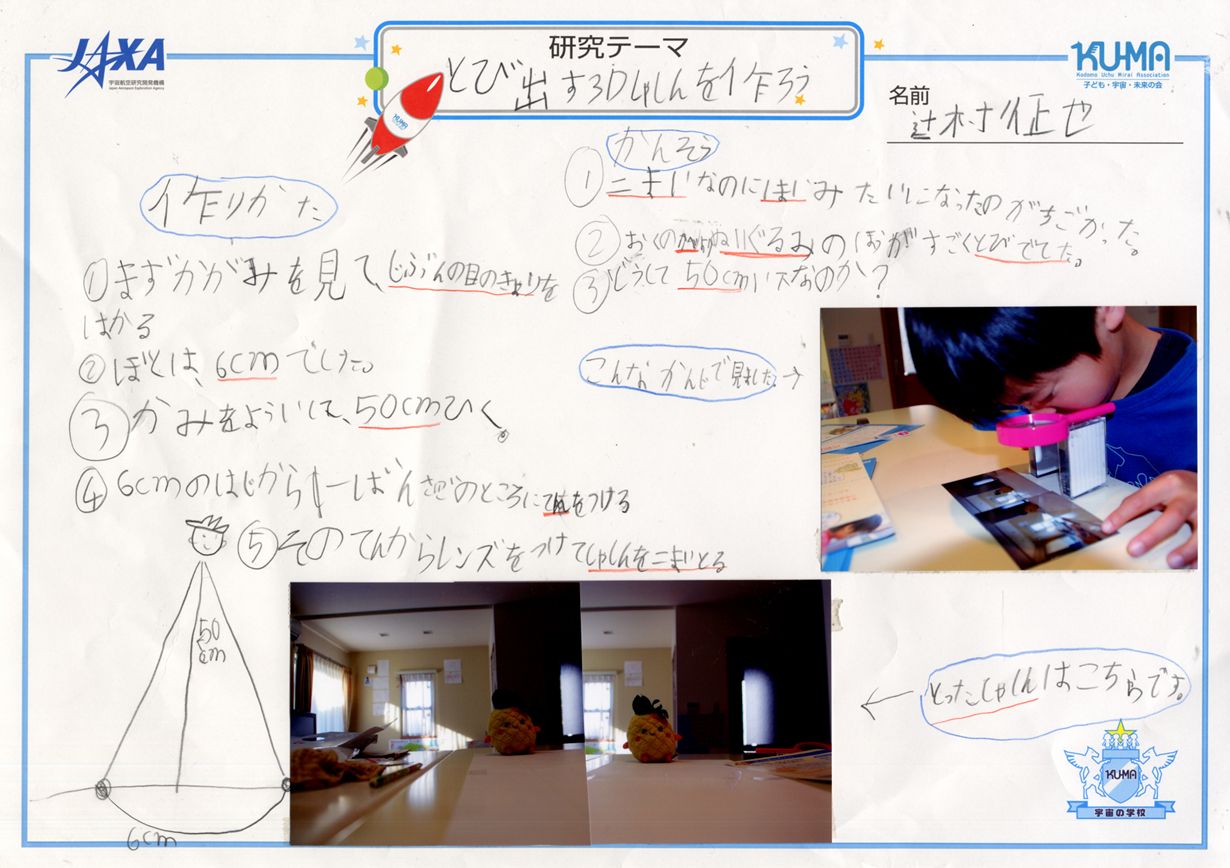 JAXA
宇宙航空研究開発機構
Japan Aerospace Exploration Agency
研究テーマ
とび出す3Dしゃしんを作ろう
KUMA
KUMA
Kodomo Uchu Mirai Association
子ども・宇宙・未来の会
名前
辻村征也
作りかた
①まずかがみを見て、じぶんの目のきょりを
はかる
②ぼくは、6cmでした。
③かみをよういして、50cmひく。
④6cmのはじから
のところにてんをつける
⑤そのてんからレンズをつけてしゃしんを二まいとる
50
cm
6cm
かんそう
①二まいなのに
みたいになったのがすごかった。
②おくの
ぬいぐるみのほうがすごくとびでてた。
③どうして50cm
なのか?
こんなかんじで見ました。→
←
とったしゃしんはこちらです。
KUMA
宇宙の学校